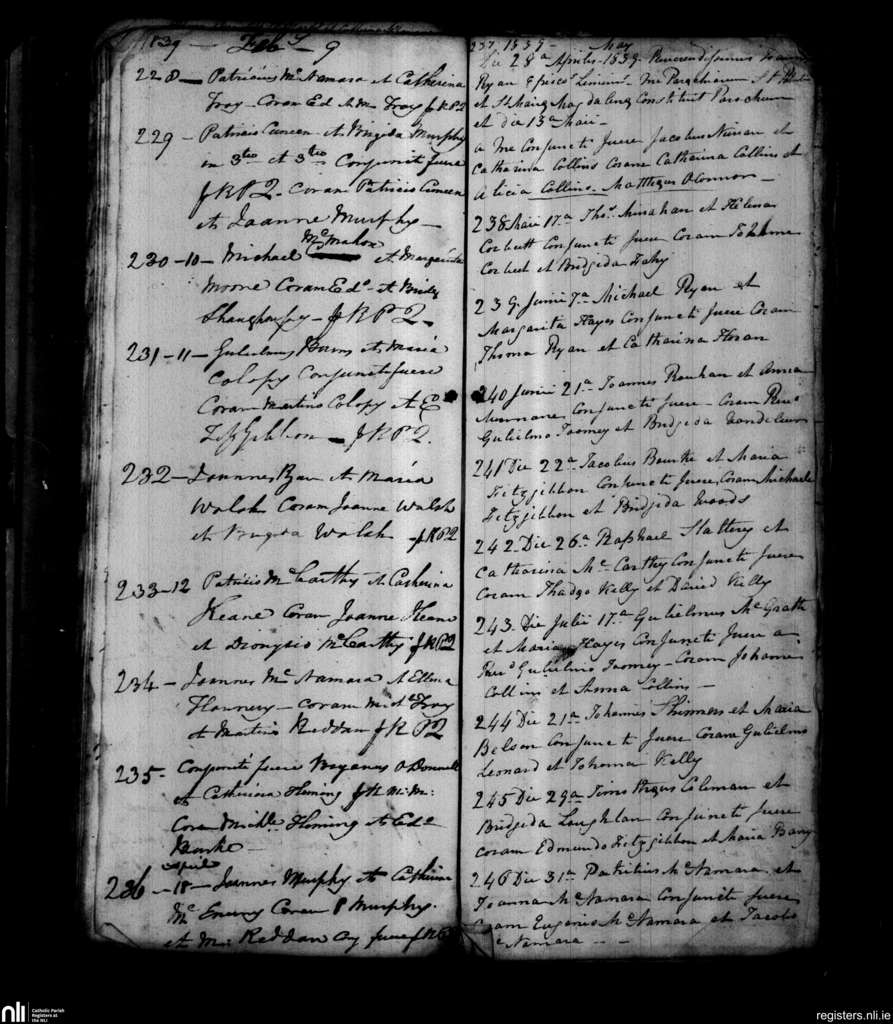 1839 — Feb — 9
228 — Patricius Mc Namara et Catherina
Troy — Coram Ed. et M. Troy J R P 2
229 — Patricis Cuneen et Brigida Murphy
in 3tio et 3tio Conjuncti fuere
J R P 2 — Coram Patricis Cuneen
et Joanne Murphy —
Mc Mahon
230 — 10 — Michael et Margarita
Moore Coram Edd. et Bridg
Shaughnessy — J R P 2 —
231 — 11 — Gulielmus Burns et Maria
Colopy Conjuncti fuere
Coram Martins Colopy et E
FitzGibbon — J R P 2.
232 — Joannes Ryan et Maria
Walsh Coram Joanne Walsh
et Brigida Walsh J R P 2
233 — 12 Patricis Mc Carthy et Catherina
Keane Coram Joanne Keane
et Dionysio Mc Carthy J R P 2
234 — Joannes Mc Namara et Ellena
Flannery — coram Troy
et Martins Reddan J R P 2
235 — Conjuncti fuere O Donnell
et Catherina Fleming
Coram Fleming et Edd
Burke —
April
236 — 18 — Joannes Murphy et Catherina
Mc Coram P Murphy.
et M. Reddan
237. 1839 — May
Die 28a Aprilis — 1839 Reverendissimus
Ryan Episcos me Parochiarum St
et St Mariae Magdalenae Constituit Parochum
et die 13a Maii —
a me Conjuncti fuere Jacobus et
Catharina Collins Coram Catharina Collins et
Alicia Collins. Mattheus O Connor —
238 Maii 17a Thos. Minahan et Helena
Corbett Conjuncti fuere Coram Johanne
Corbett et Bridgida Fahy
239. Junii 7a Michael Ryan et
Margarita Hayes Conjuncti fuere Coram
Thoma Ryan et Catharina Horan
240 Junii 21a Joannes et Anna
Conjuncti fuere — Coram
Gulielmo Toomey et Bridgida Vandeleur
241 Die 22a Jacobus Bourke et Maria
Fitzgibbon Conjuncti fuere Coram Michaele
Fitzgibbon et Bridgida Woods
242. Die 26a Raphael Slattery et
Catharina Mc Carthy Conjuncti fuere
Coram Thadeo Kelly et David Kelly
243. Die Julii 17a Gulielmus Mc Grath
et Maria Hayes Conjuncti fuere a
Revd Gulielmo Toomey — Coram Johanne
Collins et Anna Collins —
244 Die 21a Johannis Skinners et Maria
Belson Conjuncti fuere Coram Gulielmo
Leonard et Johanna Kelly
245 Die 29a Timotheus Coleman et
Bridgida Loughlan Conjuncti fuere
coram Edmundo Fitzgibbon et Maria Barry
246 Die 31a Patritius Mc Namara et
Joanna Mc Namara Conjuncti fuere
Coram Eugenio Mc Namara et Jacobo
Mc Namara — —
nli
Catholic Parish
Registers at
the NLI
registers.nli.ie